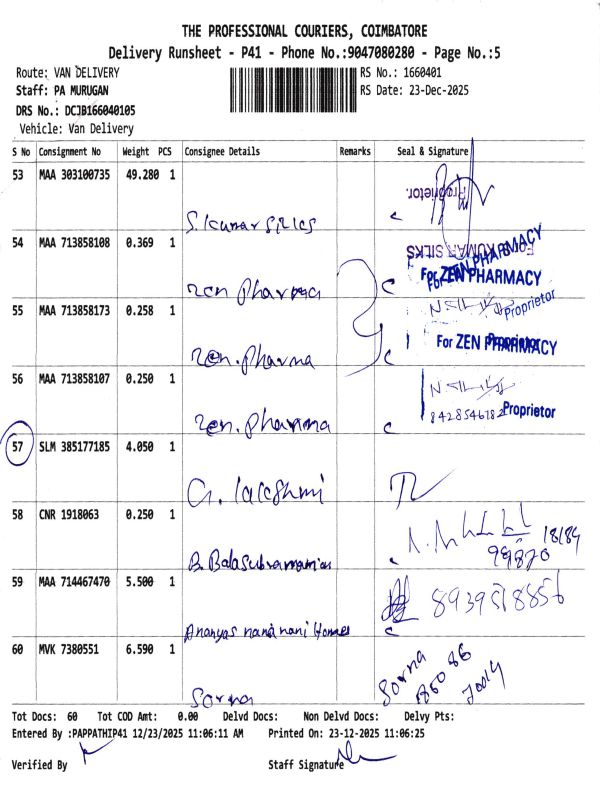 THE PROFESSIONAL COURIERS, COIMBATORE
Delivery Runsheet - P41 - Phone No.:9047080280 - Page No.:5
Route: VAN DELIVERY RS No.: 1660401
Staff: PA MURUGAN RS Date: 23-Dec-2025
DRS No.: DCJB166040105
Vehicle: Van Delivery
S No Consignment No Weight PCS Consignee Details Remarks Seal & Signature
53 MAA 303100735 49.280 1
Proprietor.
S. Kumar Silks
For KUMAR SILKS
54 MAA 713858108 0.369 1
For ZEN PHARMACY
For ZEN PHARMACY
Zen pharma
Proprietor
55 MAA 713858173 0.258 1
For ZEN PHARMACY
Proprietor
Zen. pharma
56 MAA 713858107 0.250 1
8428546782 Proprietor
Zen. pharma
57 SLM 385177185 4.050 1
G. lakshmi
58 CNR 1918063 0.250 1
18189
99870
B. Balasubramanian
59 MAA 714467470 5.500 1
8939518856
Ananyas nana nani Homes
60 MVK 7380551 6.590 1
Sorna
Sorna
Tot Docs: 60 Tot COD Amt: 0.00 Delvd Docs: Non Delvd Docs: Delvy Pts:
Entered By :PAPPATHIP41 12/23/2025 11:06:11 AM Printed On: 23-12-2025 11:06:25
Verified By Staff Signature